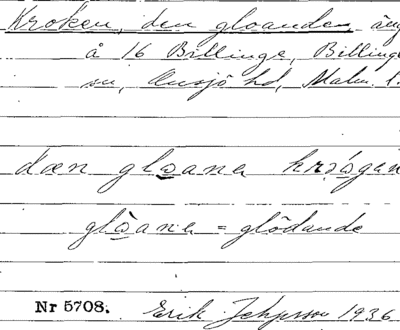 Kroken, den gloanden äng
å 16 Billinge, Billinge
sn, Onsjö hd, Malm. l.
dæn gloana krogan
gloana = glödande
Nr 5708. Erik 1936